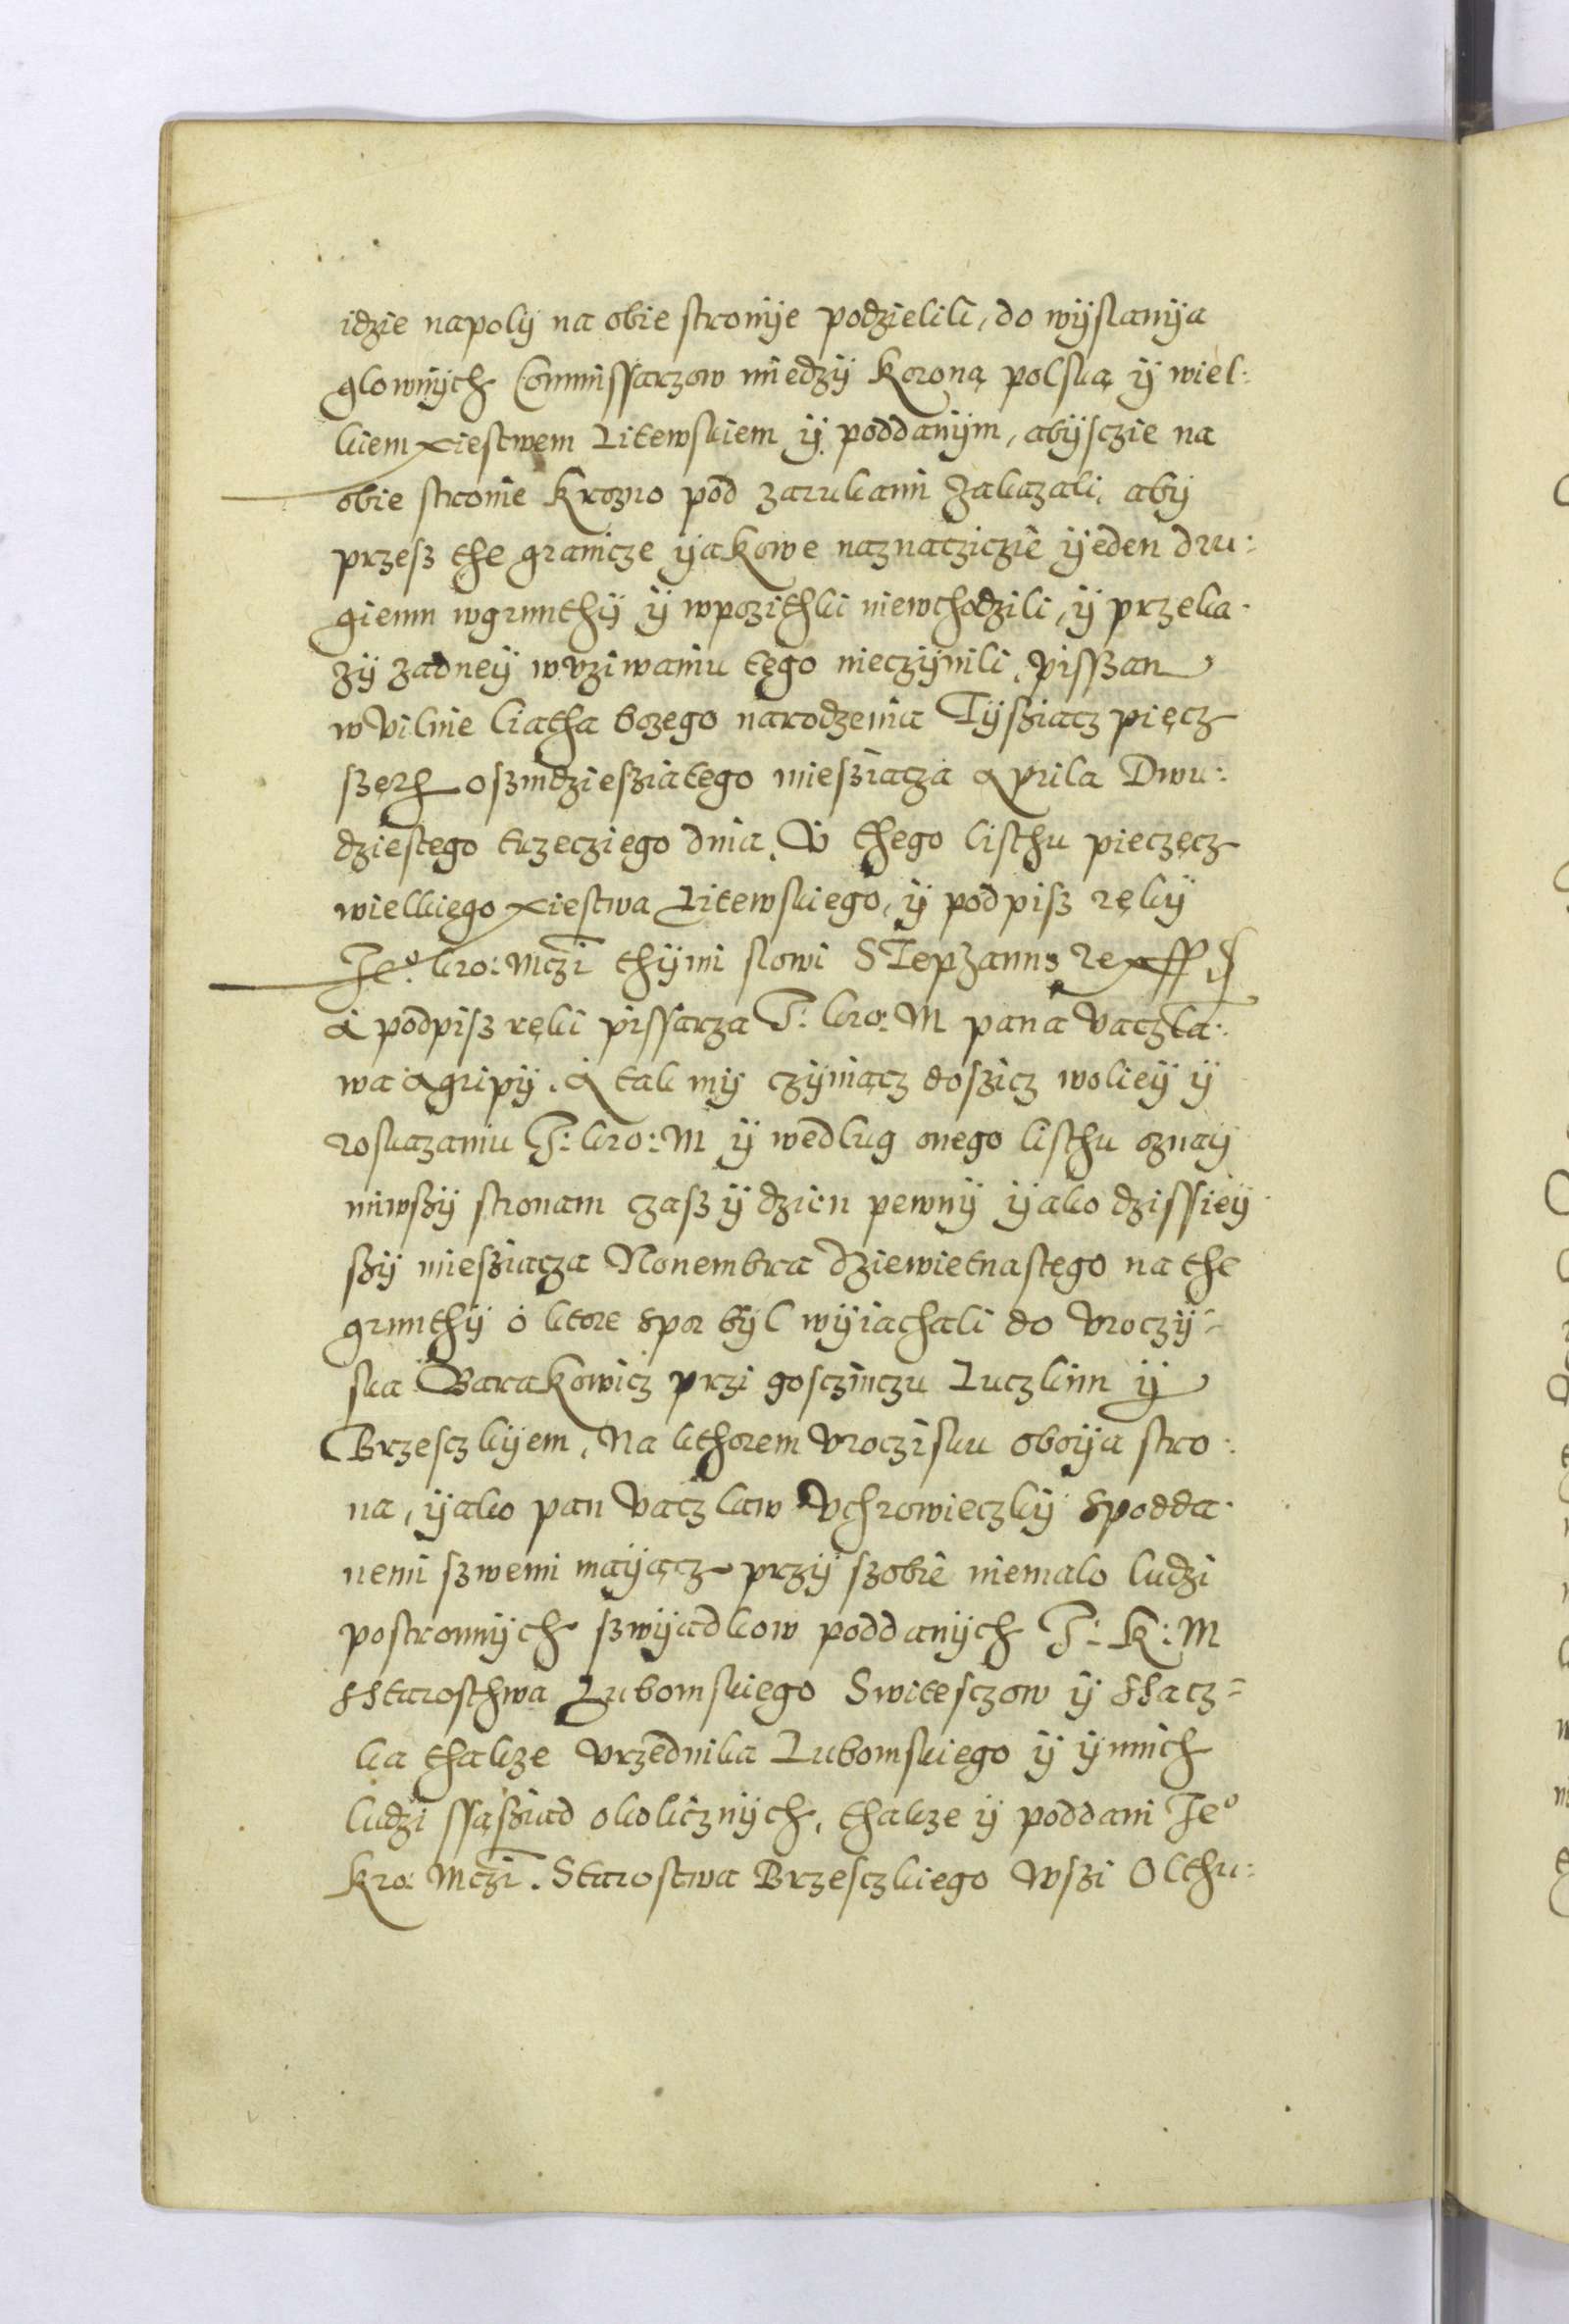 idzie napoly na obie stronÿe podzielili, do wÿslanÿa
glownÿch Commissarzow miedzÿ Koroną polską ÿ wiel:
kiem xiestwem Litewskiem ÿ poddanÿm, abÿsczie na
obie stronie Krozno pod zarukami zakazali, abÿ
przesz the granicze ÿakowe naznacziczie ÿeden dru:
giemu wgrunthÿ ÿ wpozithki niewchodzili, ÿ przeka
zÿ zadneÿ wuziwaniu tego nieczÿnili, pisszan
w Vilnie liatha bozego narodzenia Tÿsziacz pięcz
szeth oszmdziesziatego miesziacza Aprila Dwu:
dziestego trzecziego dnia. U thego listhu pieczęcz
wielkiego xiestwa Litewskiego, ÿ podpisz rękÿ
Je° kro: Mczi thÿmi slowi STepzanus Rex
A podpisz ręki pissarza J: kro: M pana Vaczla:
wa Agripÿ. A tak mÿ czÿniącz doszicz wolieÿ ÿ
roskazaniu J: kro: M ÿ wedlug onego listhu oznaÿ
miwszÿ stronam czasz ÿ dzien pewnÿ ÿako dzissieÿ
szÿ miesziacza Nouembra dziewietnastego na the
grunthÿ o ktore spor bÿl wÿiachali do vroczÿ=
ska Barakowicz przi gosczinczu Luczkim ÿ
Brzesczkÿem, Na kthorem vroczisku oboÿa stro:
na, ÿako pan Vaczlaw Vhrowieczkÿ spodda
nemi szwemi maÿącz przÿ szobie niemalo ludzi
postronnÿch szwÿadkow poddanÿch J: K: M
sstarosthwa Lubomskiego Switesczow ÿ ssacz=
ka thakze vrzednika Lubomskiego ÿ ÿnnich
ludzi ssąsziad okolicznÿch, thakze ÿ poddani Je°
Kro: Mczi. Starostwa Brzesczkiego wszi Olthu: